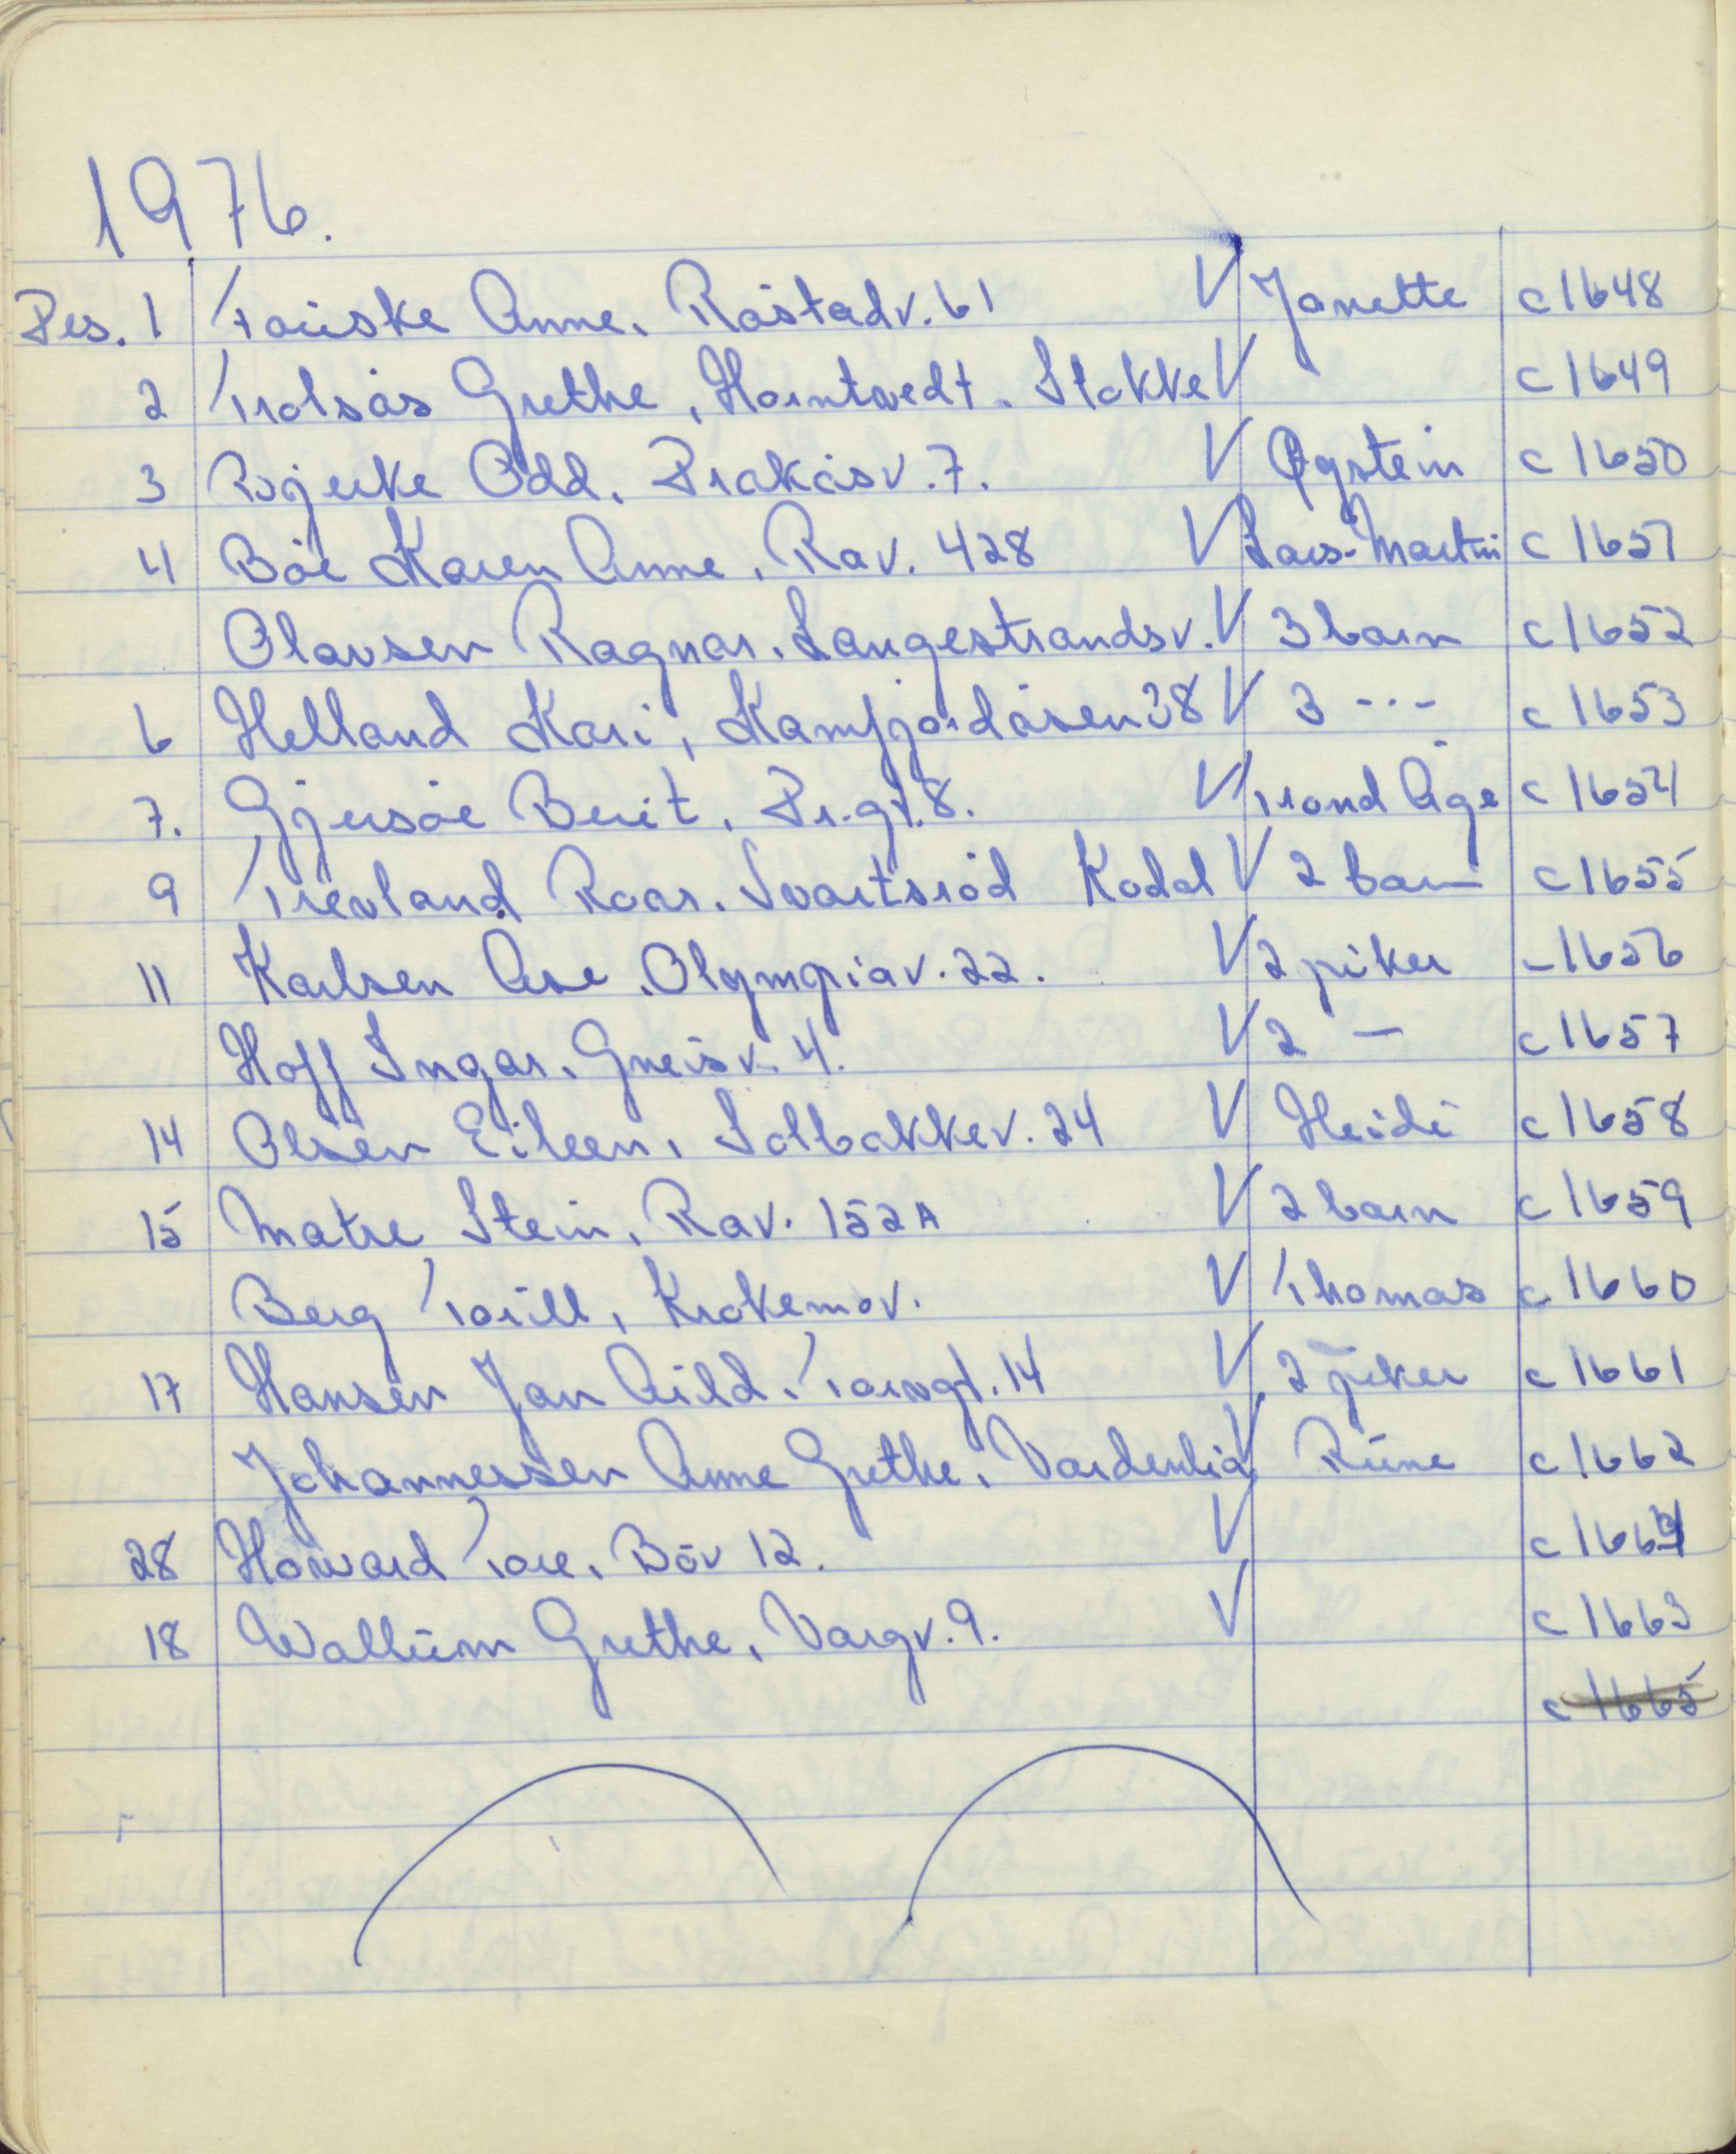 1976.
Des. 1 Fauske Anne. Råstadv. 61 V Janette c 1648
2 Trolsås Grethe, Horntvedt. Stokke V c 1649
3 Bjerke Odd. Prakåsv. 7. V Øystein c 1650
4 Bøe Karen Anne. Rav. 428 V Lars-Martin c 1651
Olavsen Ragnar. Langestrandsv. V 3 barn c 1652
6 Helland Kari, Kamfjordåsen 38 V 3 -..- c 1653
7. Gjersøe Berit. Pr.gt. 8. V Trond Åge c 1654
9 Trevland Roar. Svartsrød Kodal V 2 barn c 1655
11 Karlsen Åse. Olympiav. 22. V 2 piker - 1656
Hoff Ingar. Gneisv. 4. V 2 - c 1657
14 Olsen Eileen, Solbakkev. 24 V Heidi c 1658
15 Matre Stein, Rav. 152 A V 2 barn c 1659
Berg Torill, Krokemov. V Thomas c 1660
17 Hansen Jan Arild. Torvgt. 14 V 2 piker c 1661
Johannessen Anne Grethe. Vardenlia V Rune c 1662
28 Howard Tore. Bøv 12. V c 1664
18 Wallum Grethe, Vargv. 9. V c 1663
c 1665